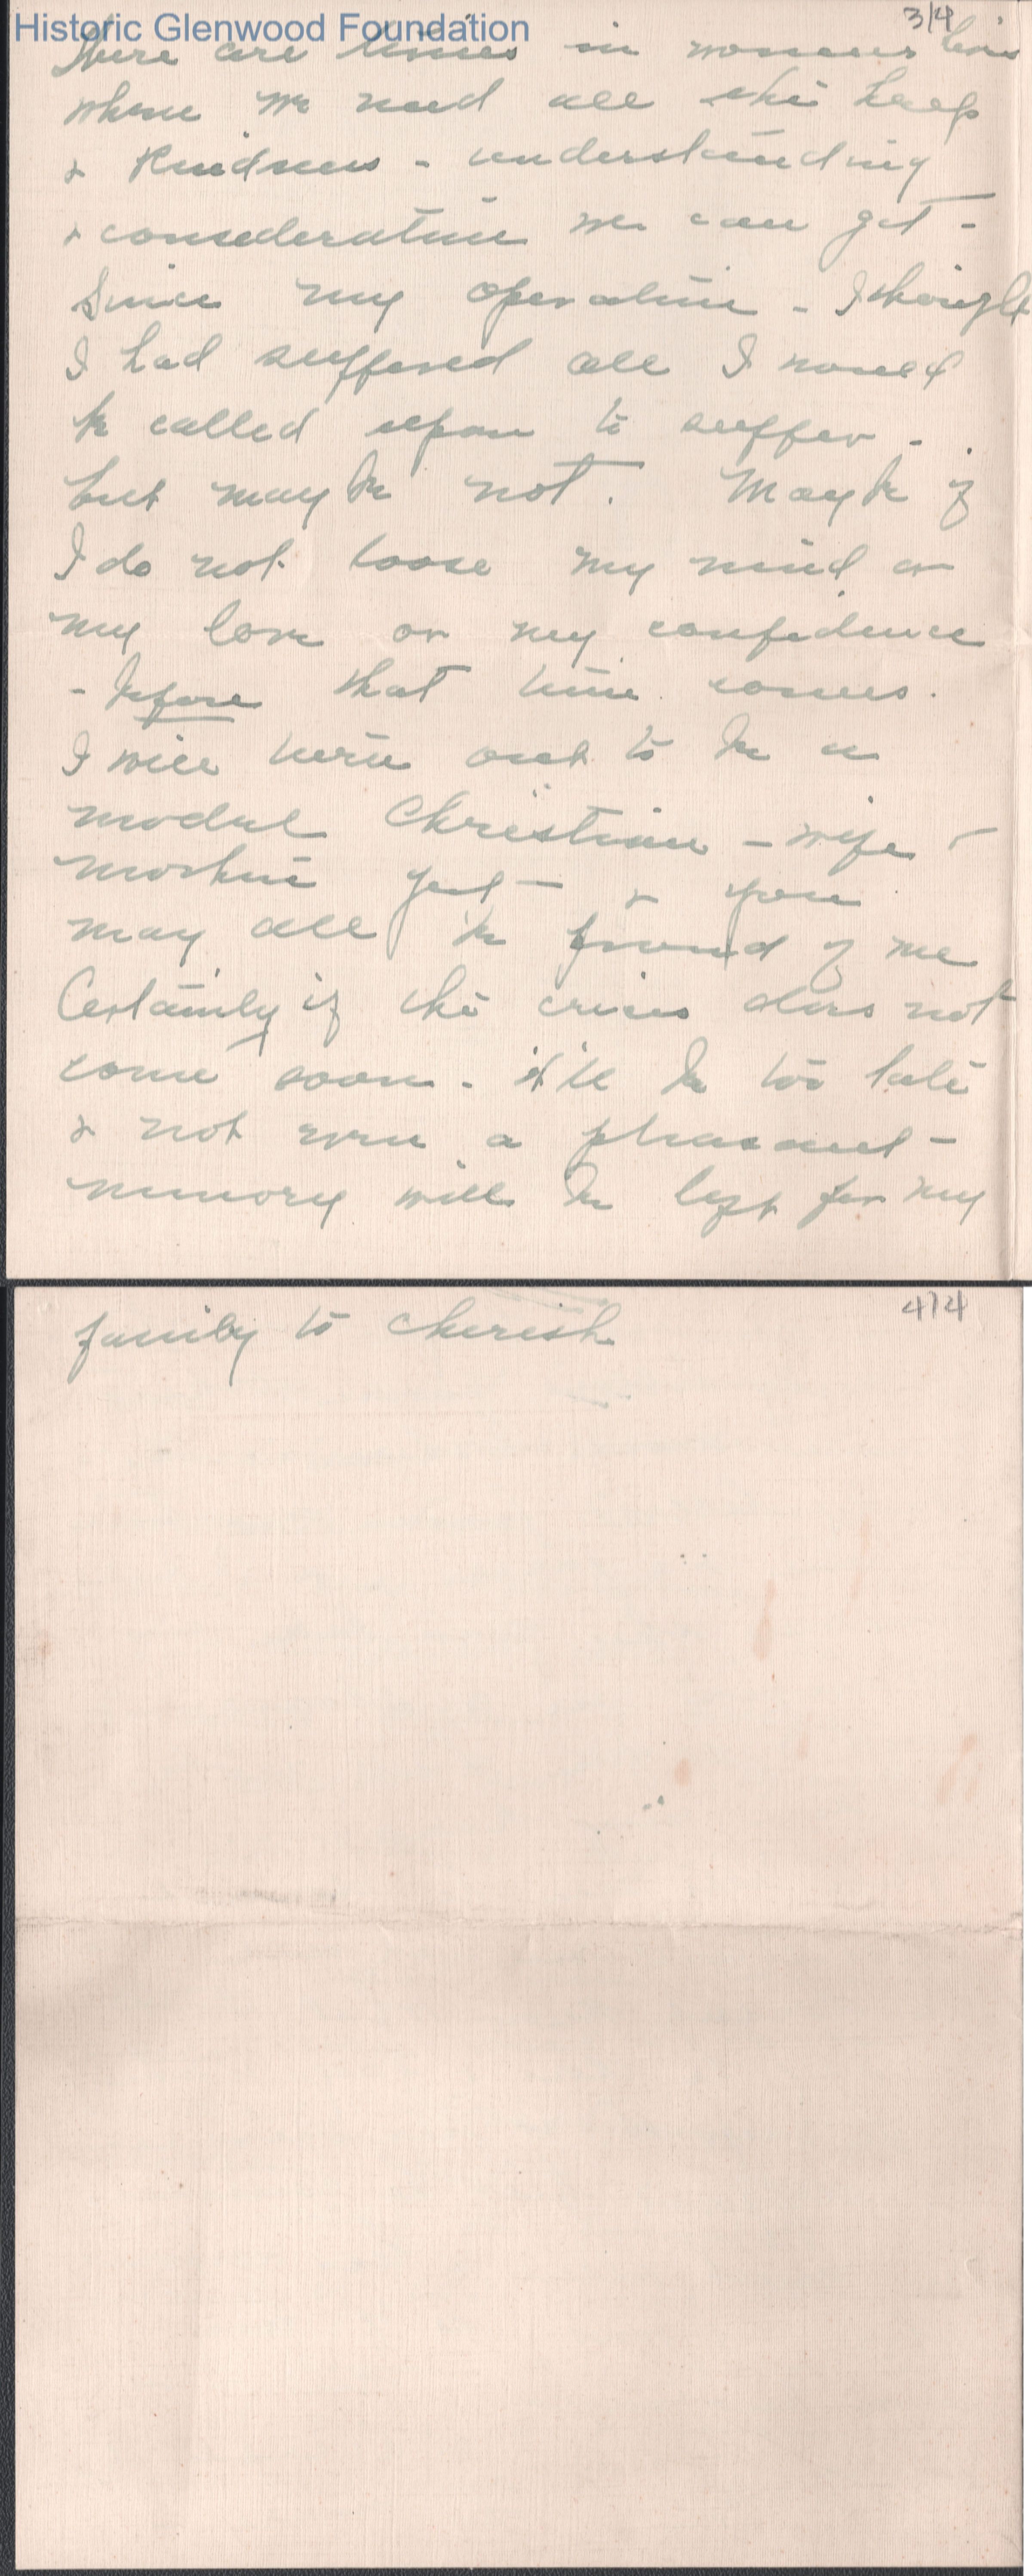 Historic Glenwood Foundation
3/4
There are times in womens lives
when we need all the help
& kindness - understanding
& consideration we can get -
Since my operation - I thought
I had suffered all I would
be called upon to suffer -
but maybe not. Maybe if
I do not loose my mind or
my love or my confidence
- before that time comes.
I will turn out to be a
model Christian - wife &
mother yet - & you
may all be proud of me
Certainly if the crisis does not
come soon - it'll be too late
& not even a pleasant -
memory will be left for my
4/4
family to cherish